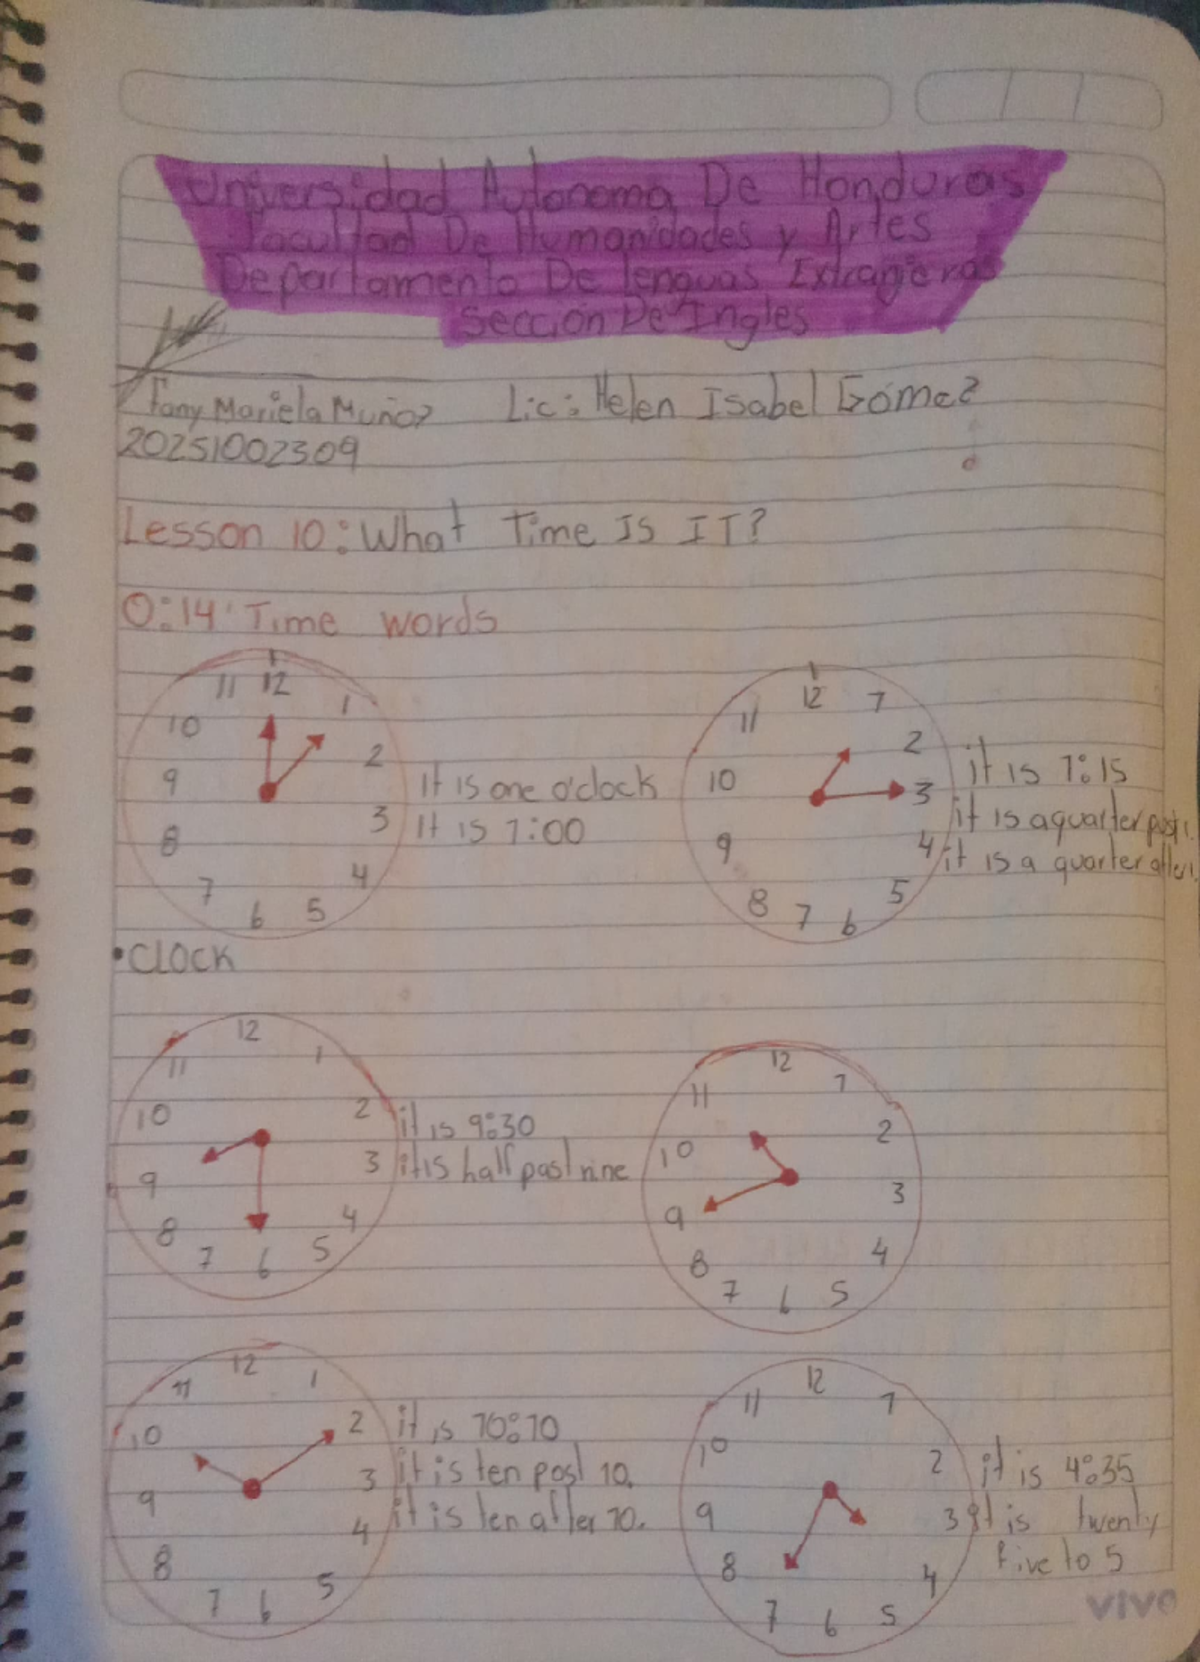 Universidad Autonoma De Honduras
Facultad De Humanidades y Artes
Departamento De lenguas Extragieras
Sección De Ingles
Fany Mariela Muñoz
Lic: Helen Isabel Gómez
20251002309
Lesson 10: What Time Is IT?
0:14 Time words
12
1
2
3
4
5
6
7
8
9
10
11
It is one o'clock
It is 1:00
12
1
2
3
4
5
6
7
8
9
10
11
it is 1:15
it is a quarter past 1.
it is a quarter after 1.
• Clock
12
1
2
3
4
5
6
7
8
9
10
11
it is 9:30
it is half past nine
12
1
2
3
4
5
6
7
8
9
10
11
12
1
2
3
4
5
6
7
8
9
10
11
it is 10:10
it is ten past 10.
it is ten after 10.
12
1
2
3
4
5
6
7
8
9
10
11
it is 4:35
it is twenty
five to 5
vivo